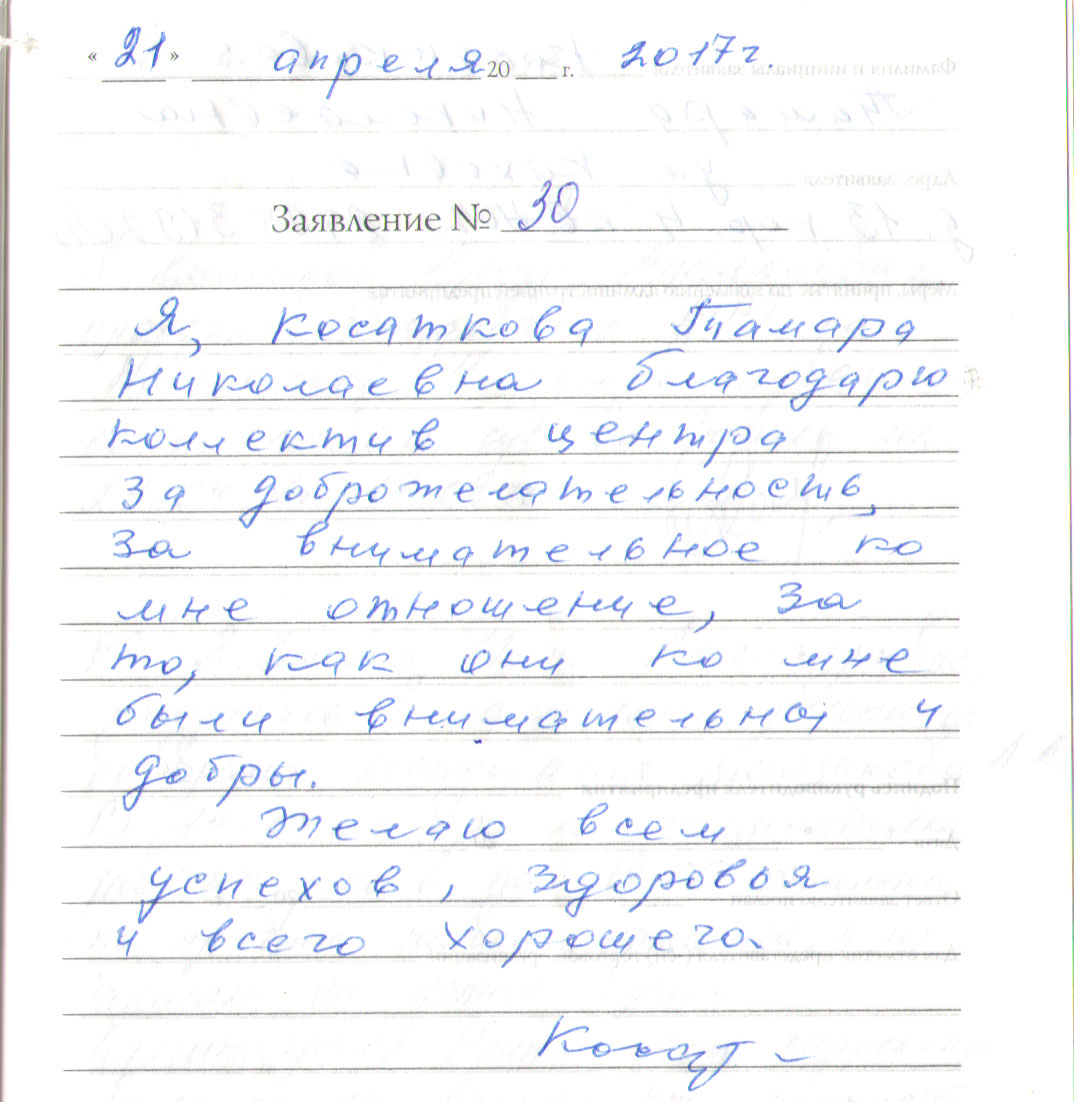 « 21 » апреля 20 г. 2017 г.
Заявление № 30
Я, Косаткова Тамара
Николаевна благодарю
коллектив центра
за доброжелательность,
за внимательное ко
мне отношение, за
то, как они ко мне
были внимательны и
добры.
Желаю всем
успехов, здоровья
и всего хорошего.